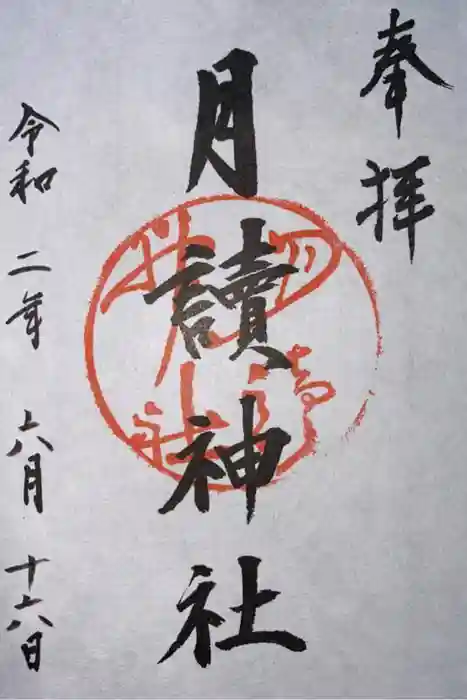 奉拝
月讀神社
令和二年六月十六日